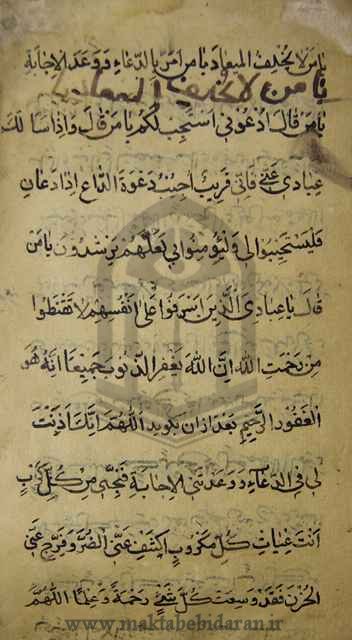 یا من لا یخلف المیعاد یا من امر بالدعاء و وعد الاجابة
یا من لا یخلف المیعاد
یا من قال ادعونی استجب لکم یا من قال و اذا سالک
عبادی عنی فانی قریب اجیب دعوة الداع اذا دعان
فلیستجیبوا لی و لیؤمنوا بی لعلهم یرشدون یا من
قال یا عبادی الذین اسرفوا علی انفسهم لا تقنطوا
من رحمت الله ان الله یغفر الذنوب جمیعا انه هو
الغفور الرحیم بعد ازان بکوید اللهم انک اذنت
لی فی الدعاء و وعدتنی الاجابة فنجنی من کل کرب
انت غیاث کل مکروب اکشف عنی الضر و فرج عنی
الحزن فقد وسعت کل شیء رحمة و علما اللهم
www.maktabeindaran.ir